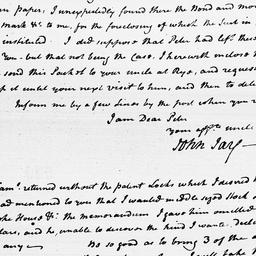 n papers, I unexpectedly found there the Bond and mor
mark &c. to me, for the foreclosing of which the Suit is
instituted. I did suppose that Peter had left these
You - but that not being the Case, I herewith inclose
send this Packet to your uncle at Rye, and request
it until your next visit to him, and then to del
Inform me by a few lines by the post when you r
I am Dear Peter
your affte. uncle
John Jay
returned without the patent Locks which I desired h
ad mentioned to you that I wanted middle sized Stock
House &c. the memorandum I gave him omitted
lars, and he, unable to discover the kind I wanted, decl
any -
Be so good as to bring 3 of the